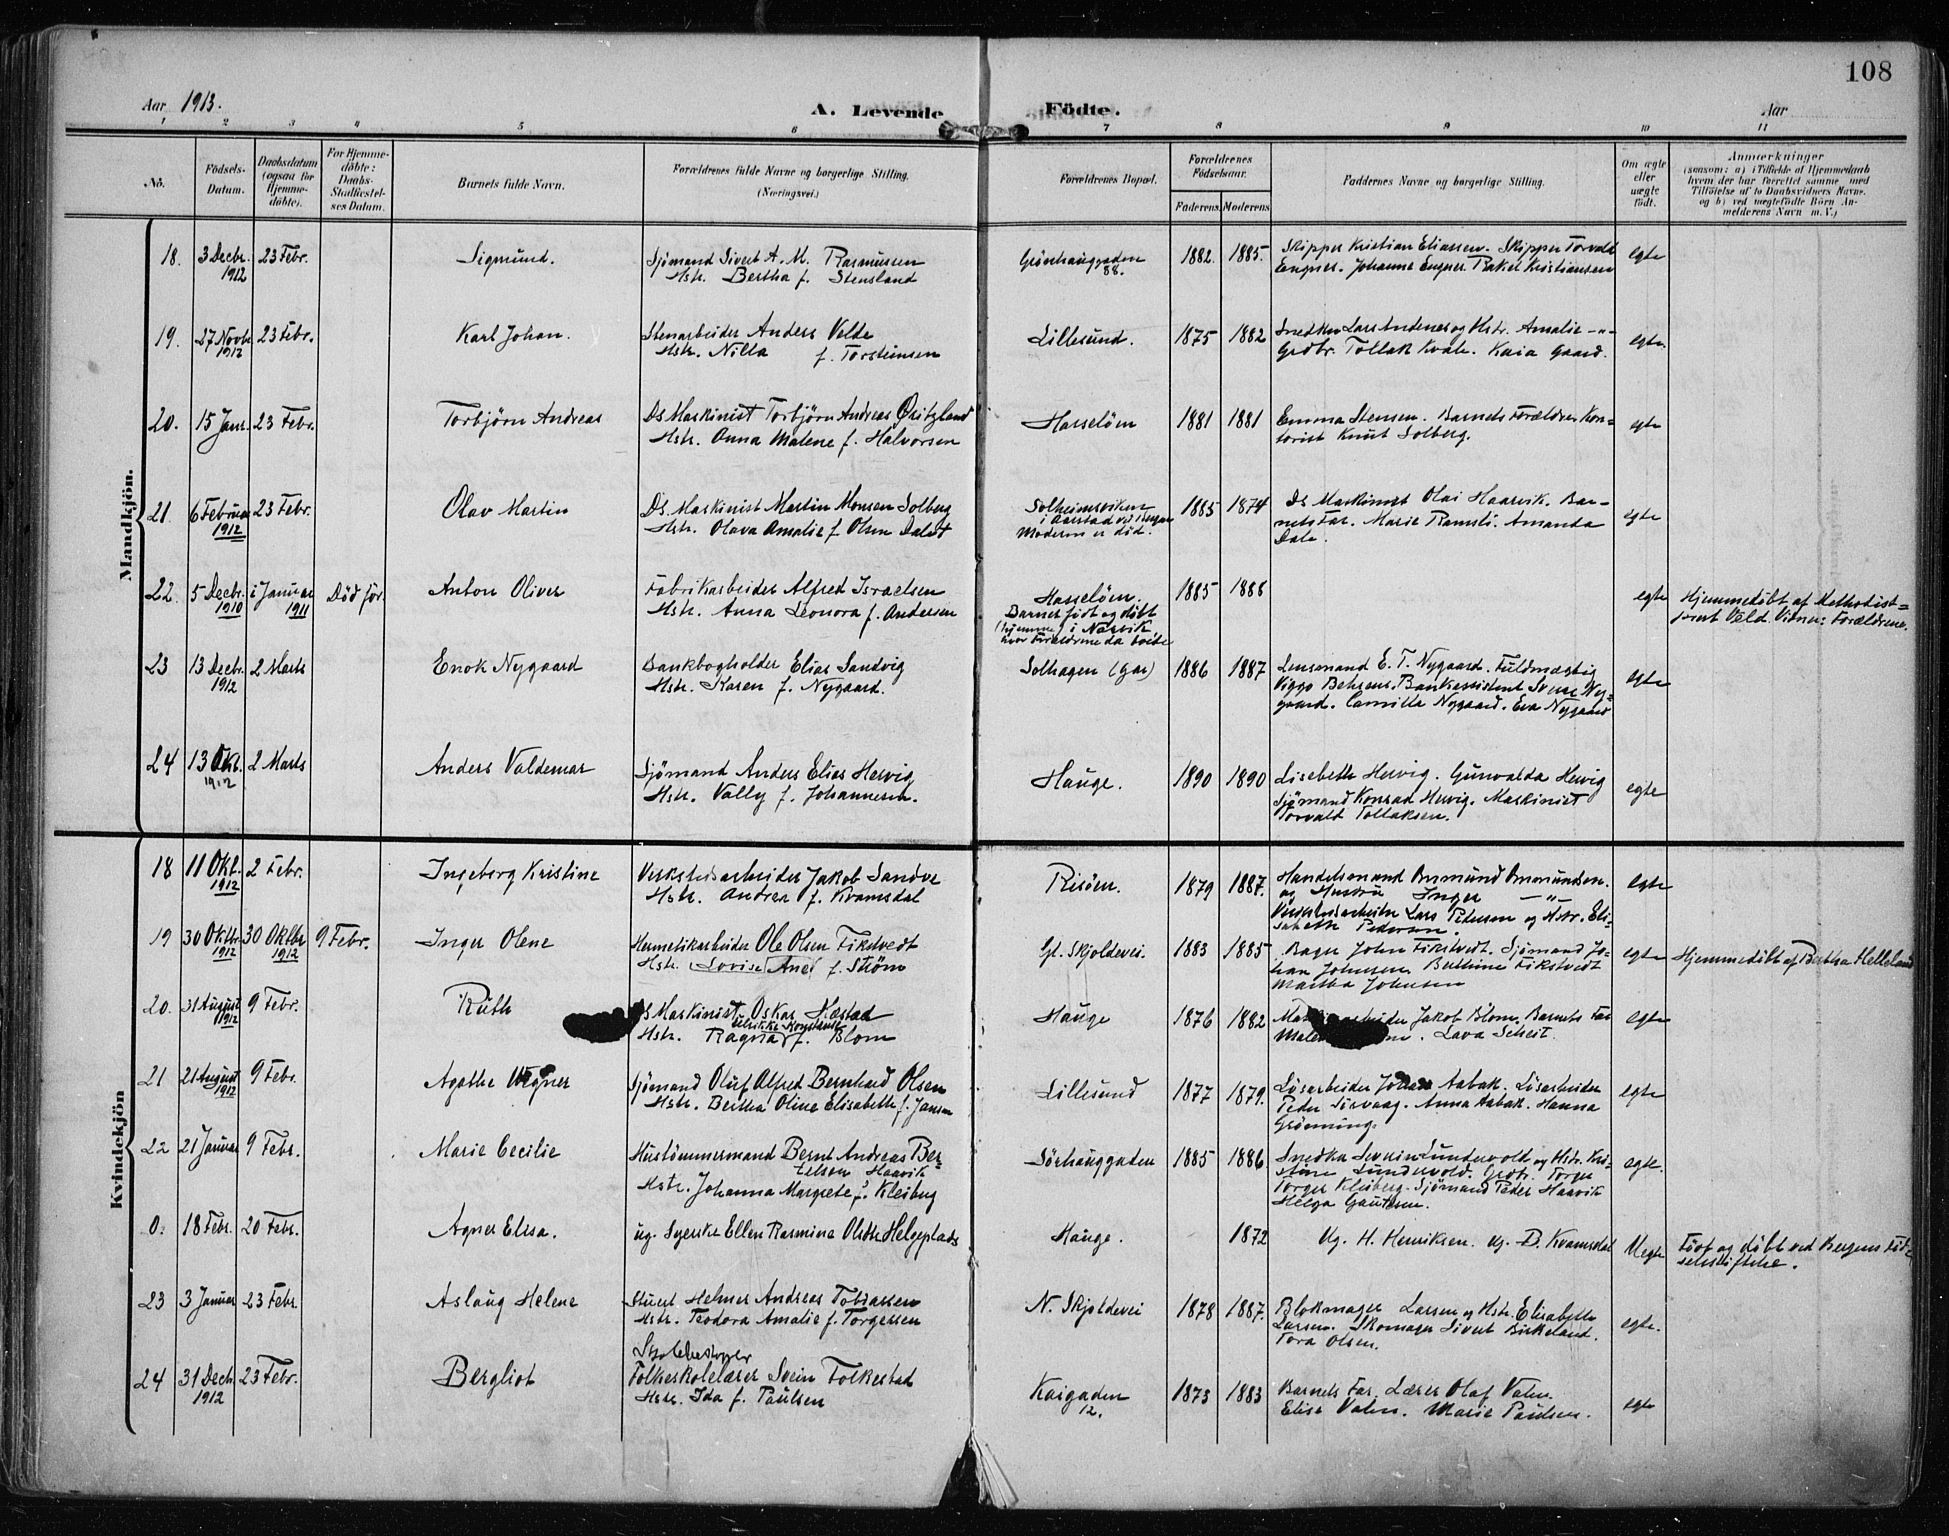 108
Aar 1913.
A. Levende Födte.
Aar
1 2 3 4 5 6 7 8 9 10 11
No.
Födsels-Datum.
Daabsdatum (ogsaa for Hjemme-döbte).
For Hjemme-döbte: Daabs-Stadfæstel-ses Datum.
Barnets fulde Navn.
Forældrenes fulde Navne og borgerlige Stilling. (Næringsvei.)
Forældrenes Bopæl.
Forældrenes Födselsaar.
Faderens. Moderens
Faddernes Navne og borgerlige Stilling.
Om ægte eller uægte födt.
Anmærkninger
(saasom: a) i Tilfælde af Hjemmedaab
hvem der har forrettet samme med
Tilföielse af to Daabsvidners Navne.
og b) ved uægtefödte Börn An-
melderens Navn m. V.)
Mandkjön.
18. 3 Decbr. 1912 23 Febr. Sigmund.
Sjömand Sivert A. M. Rasmussen
Hstr. Bertha f. Stensland
Grönhauggaden 88. 1882. 1885.
Skipper Kristian Eliassen. Skipper Torvald
Engner. Johanne Engner Rakel Kristiansen
egte
19. 27 Novbr 1912 23 Febr. Karl Johan.
Stenarbeider Anders Velde
Hstr. Nilla f. Torsteinsen
Lillesund. 1875 1882
Snedker Lars Andenes og Hstr. Amalie -"-
Grdbr. Tollak Kvale. Kaia Gaard.
egte.
20. 15 Janr. 23 Febr. Torbjörn Andreas
Ds Maskinist Torbjörn Andreas Qvitzland
Hstr. Anna Malene f. Halvorsen
Hasselöen 1881 1881
Emma Stensen. Barnets Forældre. Kon-
torist Knut Solberg.
egte
21. 6 Februar 1912 23 Febr. Olav Martin
Ds. Maskinist Martin Monsen Solberg
Hstr. Olava Amalie f. Olsen Dale
Solheimsviken
i Aarstad ved Bergen
Moderen er död. 1885 1874
Ds Maskinist Olai Haarvik. Bar-
nets Far. Marie Ramsli. Amanda
Dale.
egte
22. 5 Decbr. 1910 i Januar 1911 Död för. Anton Oliver
Fabrikarbeider Alfred Israelsen
Hstr. Anna Leonora f. Andersen
Hasselöen.
Barnet födt og döbt
(hjemme) i Narvik
hvor Forældrene da boede
1885 1888
egte
Hjemmedöbt af Methodist-
prest Veld. Vidner: Forældrene.
23 13 Decbr. 1912 2 Marts Enok Nygaard
Bankbogholder Elias Sandvig
Hstr. Karen f. Nygaard.
Solhagen (Gar) 1886 1887
Lensmand E. T. Nygaard. Fuldmægtig
Viggo Behrens. Bankassistent Sverre Ny-
gaard. Camilla Nygaard. Eva Nygaard
egte
24 13 Okt. 1912 2 Marts Anders Valdemar
Sjömand Anders Elias Hervig
Hstr. Vally f. Johannesen.
Hauge. 1890 1890
Lisebeth Hervig. Gunvalda Hervig
Sjömand Konrad Hervig. Maskinist
Torvald Tollaksen.
egte
Kvindekjön
18 11 Okt. 1912 2 Febr. Ingeborg Kristine
Verkstedsarbeider Jakob Sandve
Hstr. Andrea f. Kvamsdal
Risöen. 1879 1887.
Handelsmand Ommund Ommundsen.
og Hustru Inger -"-
Verkstedsarbeider Lars Pedersen og Hstr. Eli-
sabeth Pedersen.
egte
19 30 Oktbr. 1912 30 Oktbr 1912 9 Febr. Inger Olene
Hermetikarbeider Ole Olsen Fikstvedt
Hstr. Lovise (Ane) f. Ström
Gl. Skjoldevei. 1883 1885
Bager John Fikstvedt. Sjömand Jo-
han Johnsen Berthine Fikstvedt
Martha Johnsen
egte
Hjemmedöbt af Bertha Helleland
20. 31 August 1912 9 Febr. Ruth
Ds Maskinist Oskar Næstad
Hstr. Ragna Ulrikke Konstanse f. Blom
Hauge 1876 1882
Jakob Blom. Barnets Far
Lava Scheit.
egte
21 21 August 1912 9 Febr. Agathe Wegner
Sjömand Oluf Alfred Bernhard Olsen
Hstr. Bertha Oline Elisabeth f. Jansen
Lillesund 1877 1879.
Lösarbeider Johan Aabak. Lösarbeider
Peder Sörvaag. Anna Aabak. Hanna
Gröenning.
egte
22 21 Januar 9 Febr. Marie Cecilie
Hustömmermand Bernt Andreas Ber-
telsen Haavik
Hstr. Johanna Margrete f. Kleiberg
Sörhauggaden 1885 1886
Snedker Severin Lundevold og Hstr. Kri-
stine Lundevold. Grdbr. Torger
Torger Kleiberg. Sjömand Peder Haavik
Helga Gautesen.
egte.
0. 18 Febr. 20 Febr. Agnes Elisa.
ug. Syerske Ellen Rasmine Olsdtr Helgeplads
Hauge. 1872
Ug. H. Henriksen. Ug. D. Kvamsdal
Uegte
Födt og döbt ved Bergens Föd-
selsstiftelse.
23 3 Januar 23 Febr. Aslaug Helene
Stuert Helmer Andreas Tobiassen
Hstr. Teodora Amalie f. Torgersen
N. Skjoldevei 1878 1887.
Blokmager Larsen og Hstr. Elisabeth
Larsen. Skomager Sivert Birkeland.
Tora Olsen.
egte.
24 31 Decbr. 1912 23 Febr. Bergliot
Skolebestyrer
Folkeskolelærer Svein Folkestad
Hstr. Ida f. Paulsen
Kaigaden 12. 1873 1883
Barnets Far. Lærer Olaf Valen.
Elise Valen. Marie Paulsen.
egte